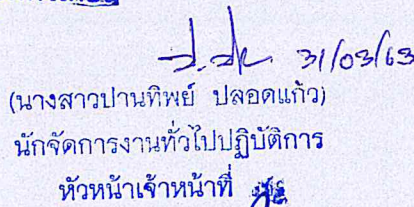 31/03/63
(นางสาวปานทิพย์ ปลอดแก้ว)
นักจัดการงานทั่วไปปฏิบัติการ
หัวหน้าเจ้าหน้าที่